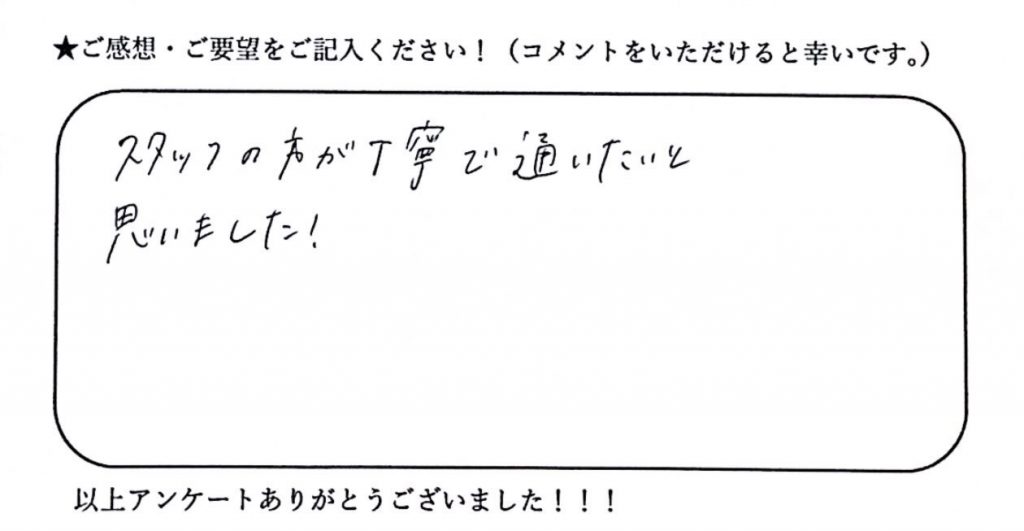 ★ご感想・ご要望をご記入ください！（コメントをいただけると幸いです。）
スタッフの方が丁寧で通いたいと
思いました！
以上アンケートありがとうございました！！！